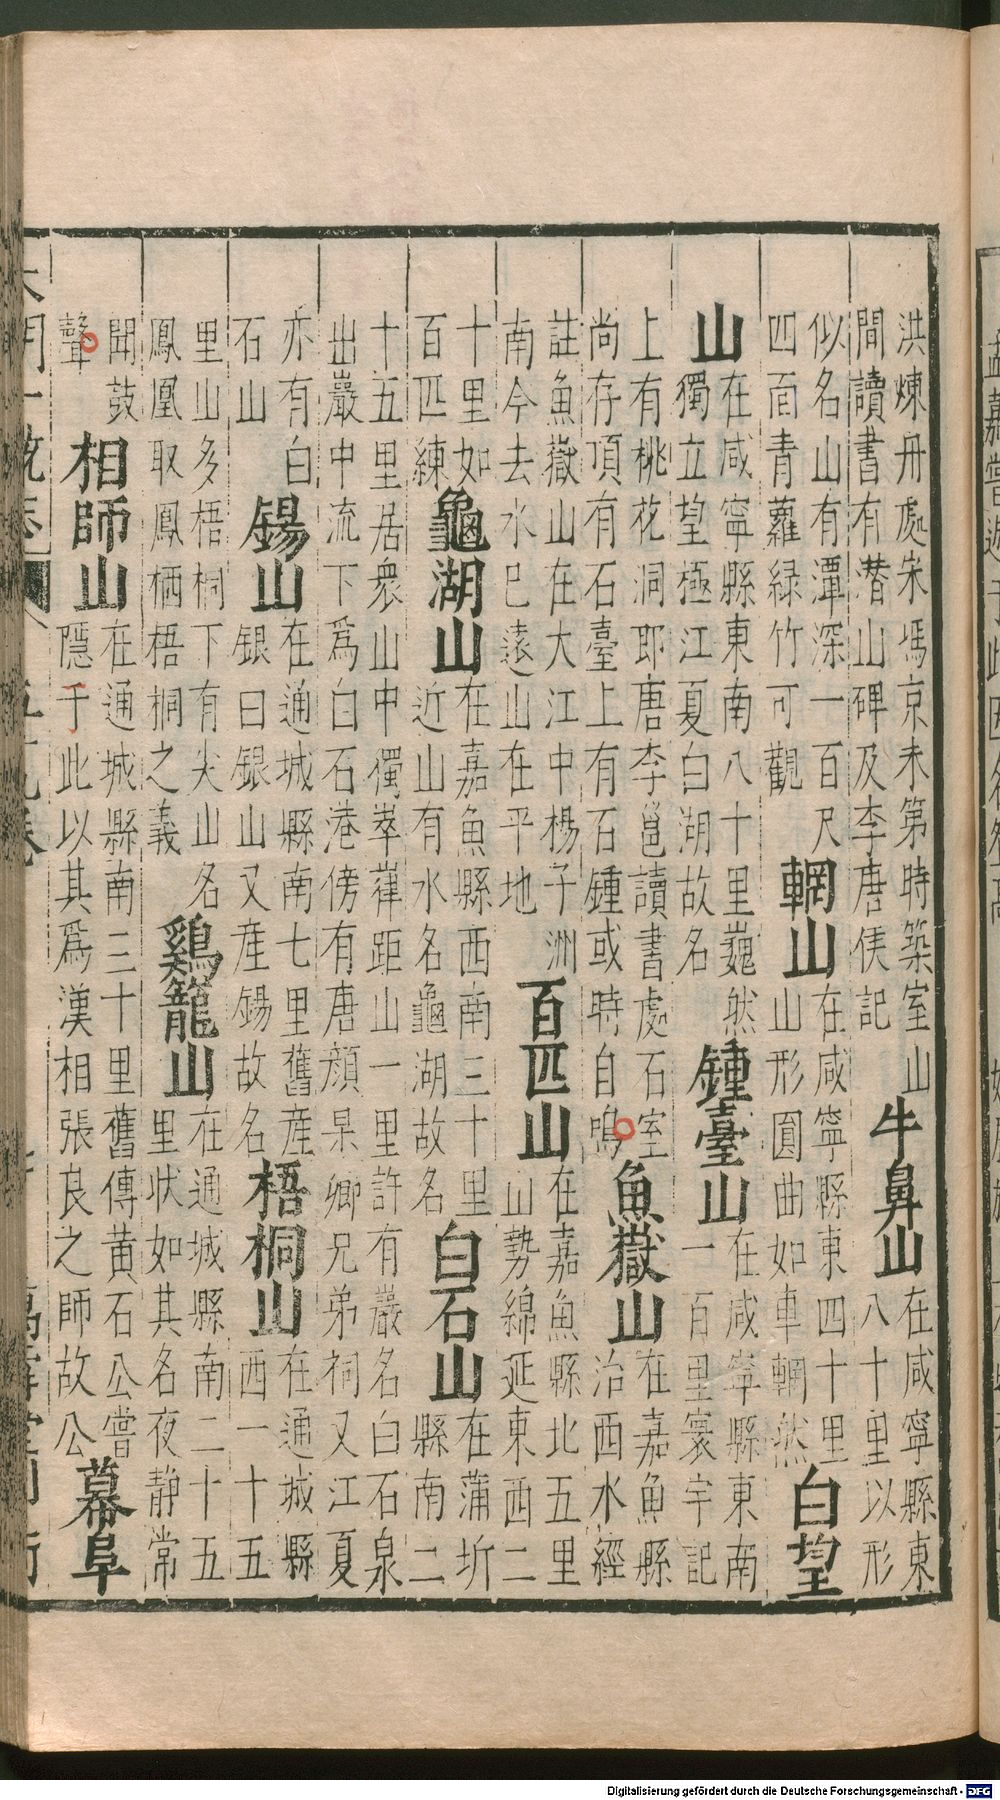 洪煉丹處宋馮京未第時築室山
間讀書有潜山碑及李唐侯記
牛鼻山
在咸寧縣東
八十里以形
似名山有潭深一百尺
四面青蘿緑竹可觀
輞山
在咸寧縣東四十里
山形圓曲如車輞然
白望
山
在咸寧縣東南八十里巍然
獨立望極江夏白湖故名
鍾臺山
在咸寧縣東南
一百里寰宇記
上有桃花洞耶唐李邕讀書處石室
尚存頂有石臺上有石鍾或時自鳴
魚嶽山
在嘉魚縣
治西水經
註魚嶽山在大江中楊子洲
南今去水已遠山在平地
百匹山
在嘉魚縣北五里
山勢綿延東西二
十里如
百匹練
龜湖山
在嘉魚縣西南三十里
近山有水名龜湖故名
白石山
在蒲圻
縣南二
十五里居衆山中獨崒嵂距山一里許有巖名白石泉
出巖中流下爲白石港傍有唐顔杲卿兄弟祠又江夏
亦有白
石山
錫山
在通城縣南七里舊産
銀曰銀山又産錫故名
梧桐山
在通城縣
西一十五
里山多梧桐下有尖山名
鳳凰取鳳栖梧桐之義
鷄籠山
在通城縣南二十五
里状如其名夜静常
聞鼓
聲
相師山
在通城縣南三十里舊傳黄石公嘗
隱于此以其爲漢相張良之師故公
幕阜
大明一統志
萬壽堂刊行
Digitalisierung gefördert durch die Deutsche Forschungsgemeinschaft - DFG